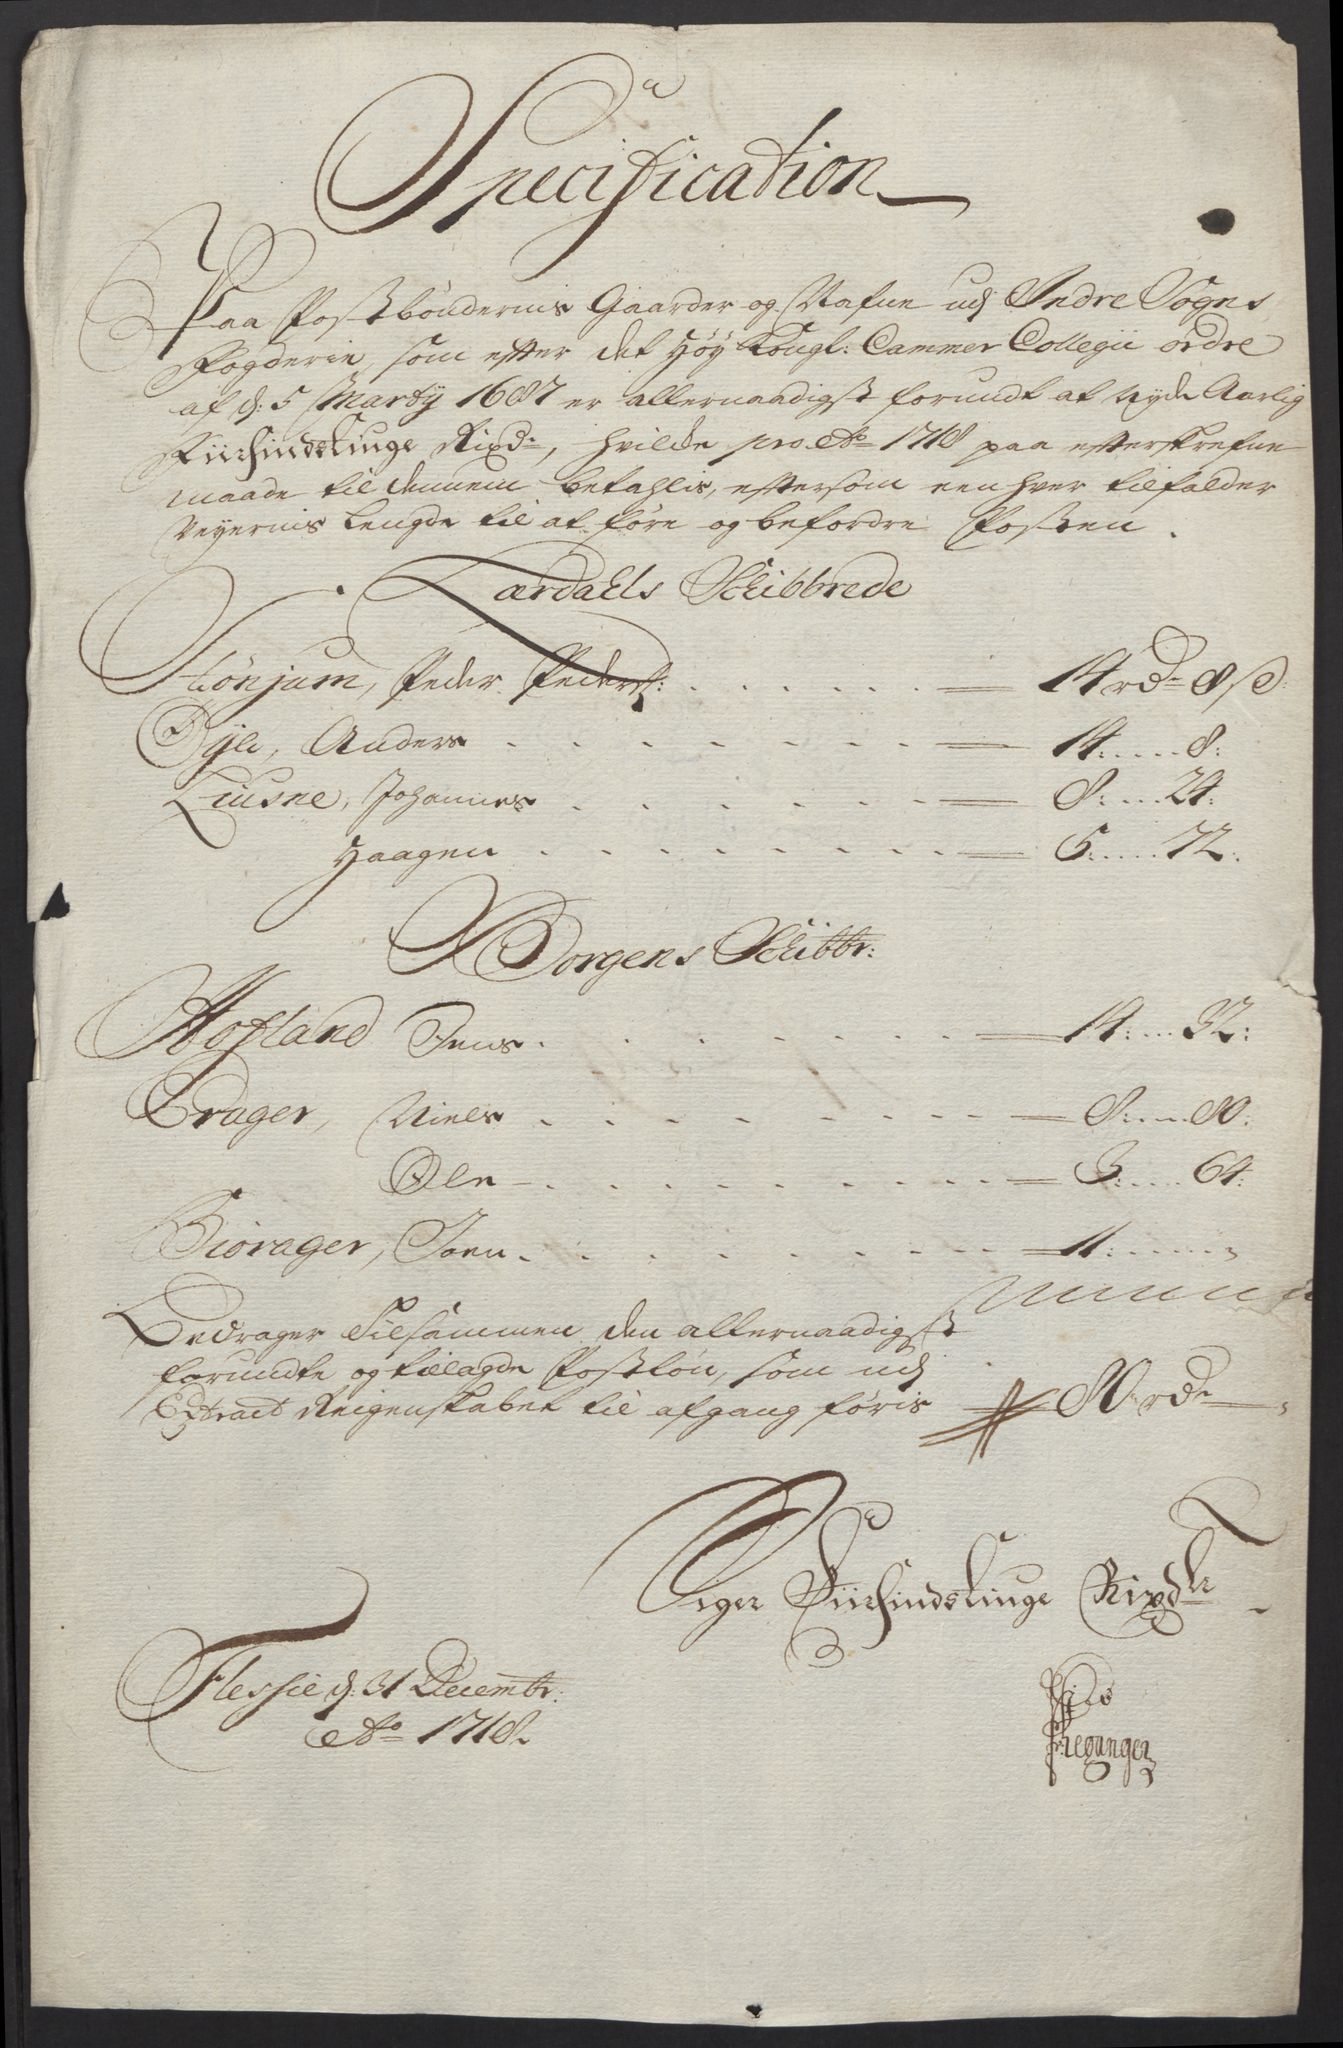 Specification
Paa Postbøndernis Gaarder og Nafne udj Indre Sogns
Fogderie, som efter det Høy Kongl: Cammer Collegii ordre
af d: 5 Martÿ 1687 er allernaadigst forundt at Nyde Aarlig
Fiirsindstiuge Rixd:, hvilcke pro Ao 1718 paa efterskrefne
maade til dennem betahlis, eftersom een hver tilfalder
Veyernis Lengde til at føre og befordre Posten.
Lærdahls Schibbrede
Hønjum, Peder Peders: 14 rd 8 ß
Øÿe, Anders 14: 8:
Liusne, Johannes 8: 24:
Haagen 5: 72:
Borgens Schibbr:
Hofland Jens 14: 32:
Crager, Niels 8: 80:
Ole 3: 64:
Biørager, Joen 11:
Bedrager Tilsammen den allernaadigst
forundte og tillagde Postløn, som udj
Extract Reigenskabet til afgang føris 80 rd
Siger Fiirsindstiuge Rixdlr
Flessie d: 31 Decembr:
Ao 1718.